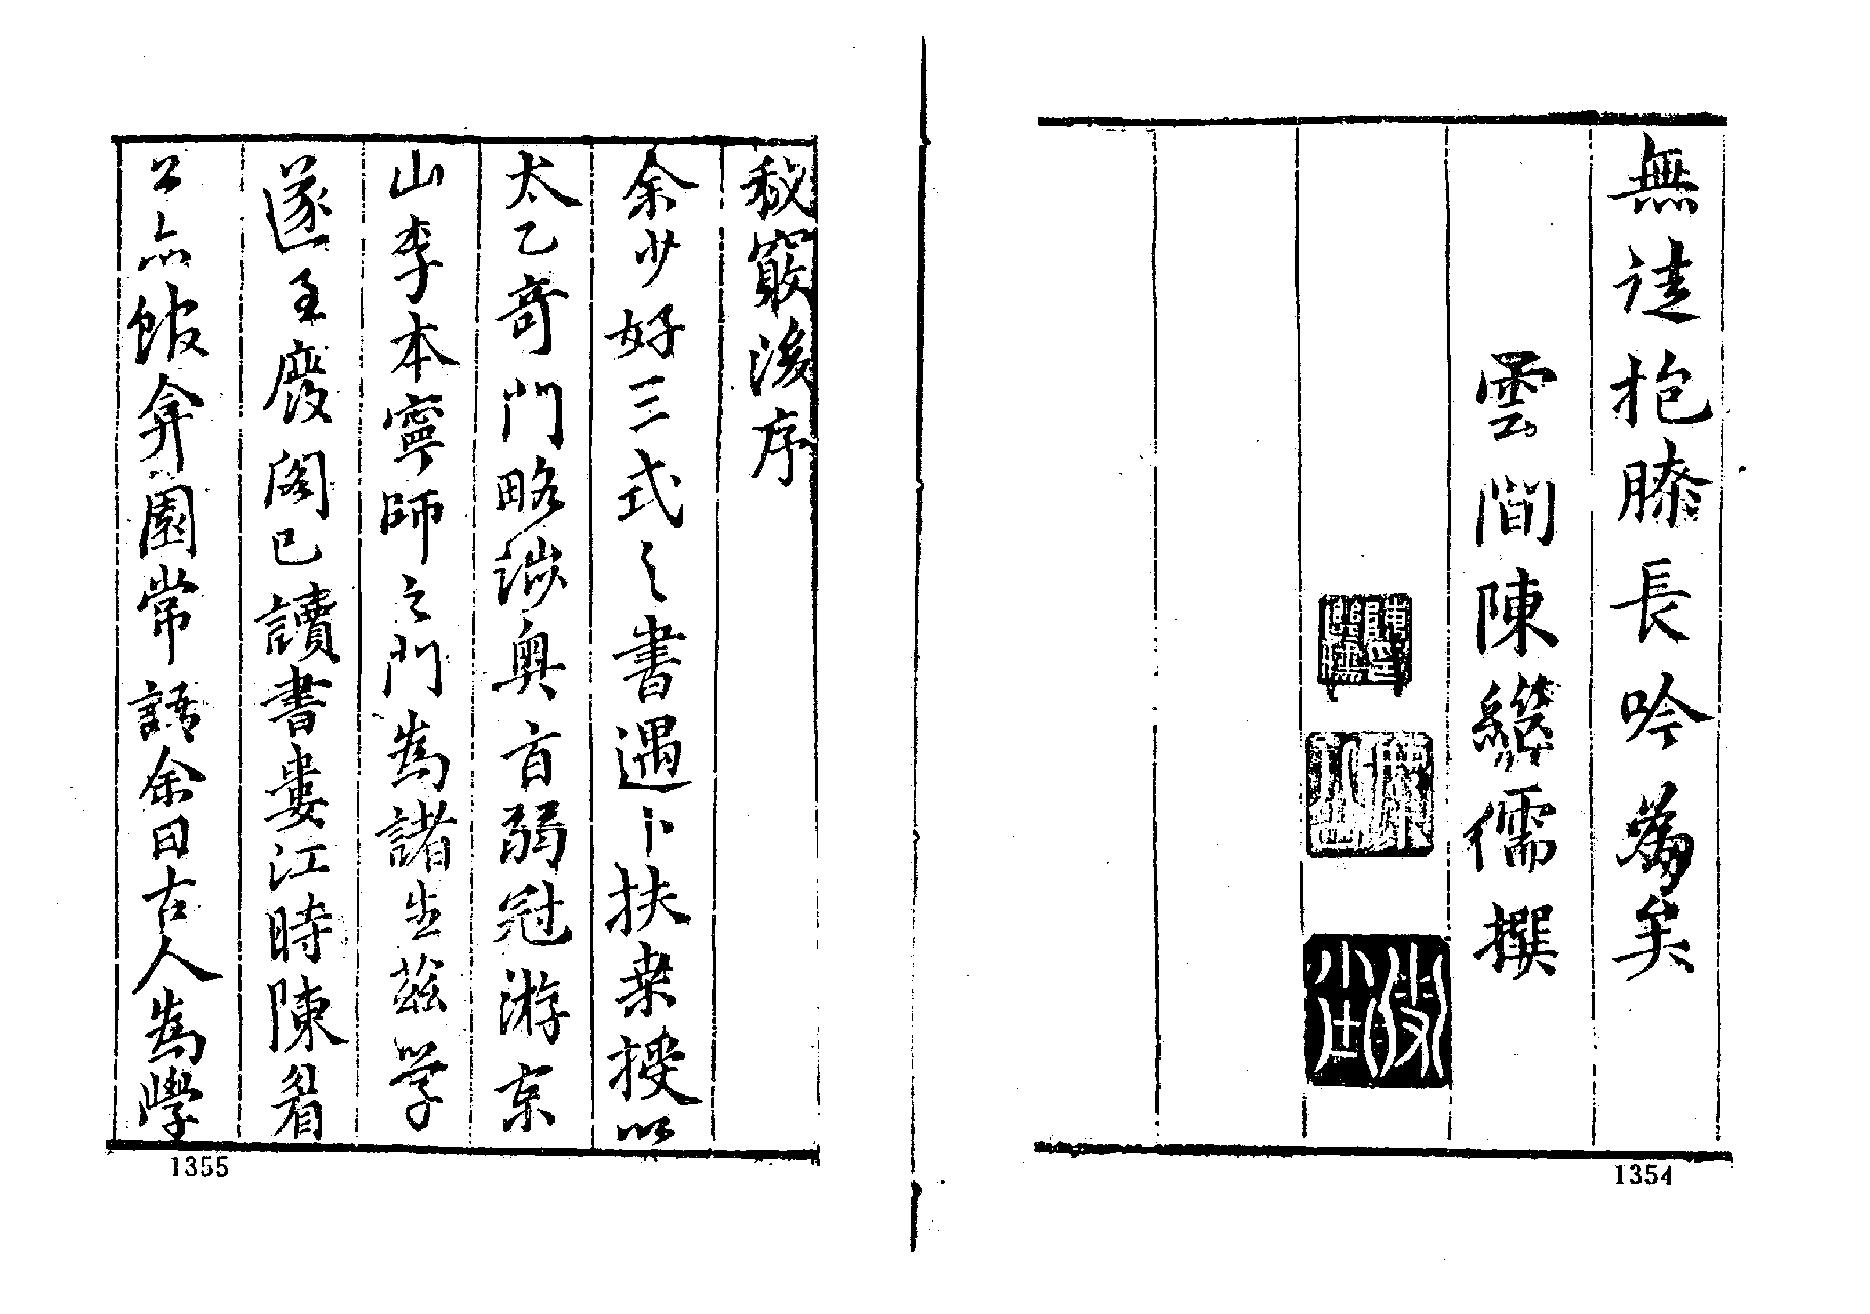 無徒抱膝長吟為矣
雲間陳繼儒撰
1354
秘竅後序
余少好三式之書遇卜扶桒授以
太乙奇門略涉奧旨弱冠游京
山李本寧師之門為諸生茲学
遂至廢閣已讀書婁江時陳眉
公亦館弇園常語余曰古人為學
1355